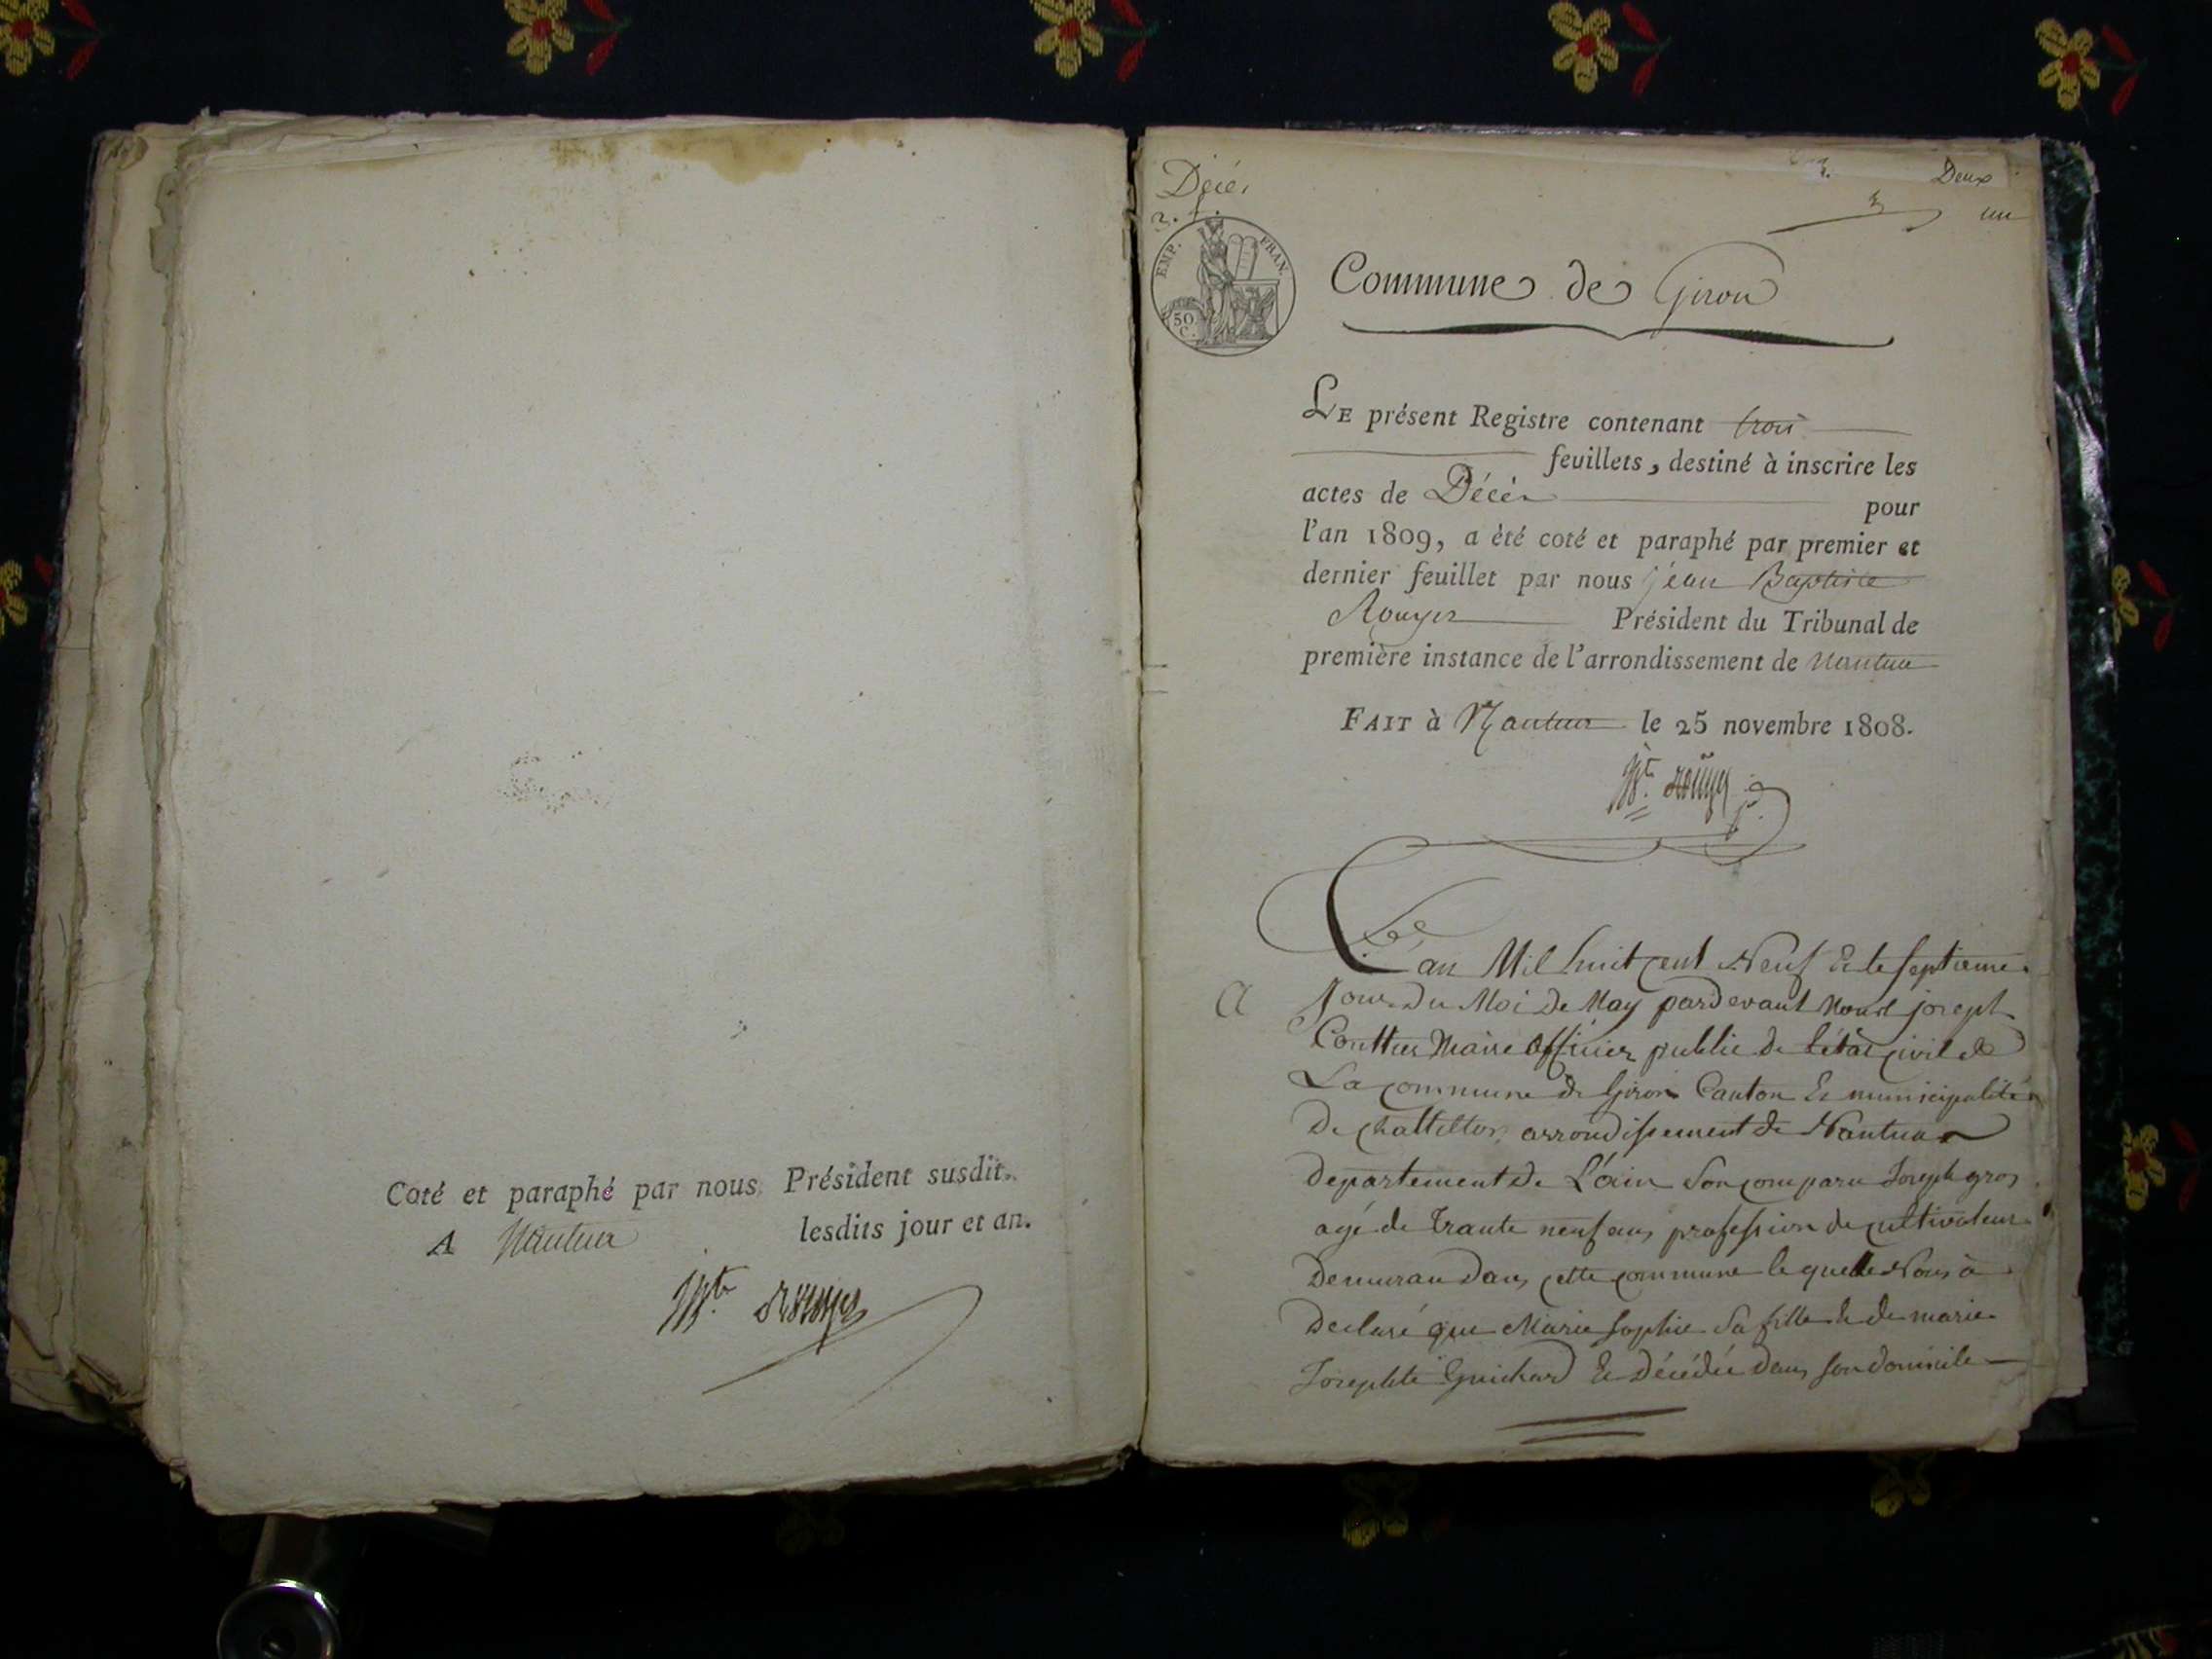 Coté et paraphé par nous Président susdit.
A Nantua lesdits jour et an.
Jn Bte Rouyer
Décès
3. f.
Deux
un
EMP. FRAN.
50 C.
Commune de Giron
LE présent Registre contenant trois
feuillets, destiné à inscrire les
actes de Décès pour
l'an 1809, a été coté et paraphé par premier et
dernier feuillet par nous jean Baptiste
Rouyer Président du Tribunal de
première instance de l'arrondissement de Nantua
FAIT à Nantua le 25 novembre 1808.
Rouyer
L'an Mil huit cent Neuf & le septieme
a
Jour du Moi de May pardevant Nous joseph
Maire officier public de l'état civil de
La commune de Giron Canton Et municipalité
De chattillon arrondissement de Nantua
departement de L'ain son comparu Joseph gros
agé de trante neuf ans profession de cultivateur
Demuran dans cette commune lequelle Nous à
Declaré que Marie sophie sa fille & de marie
Josephte Guichard Et Décédée dans son domicile